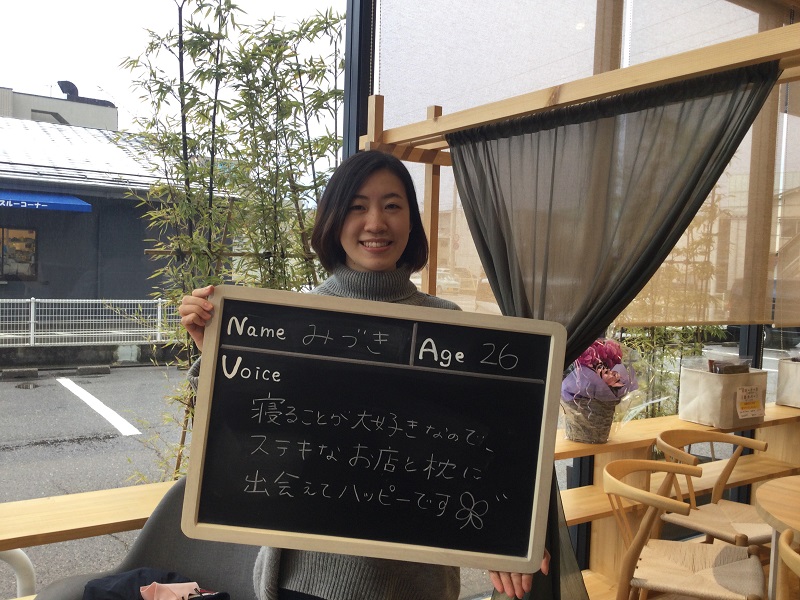 スルーコーナー
Name みづき
Age 26
Voice
寝ることが大好きなので、
ステキなお店と枕に
出会えてハッピーです